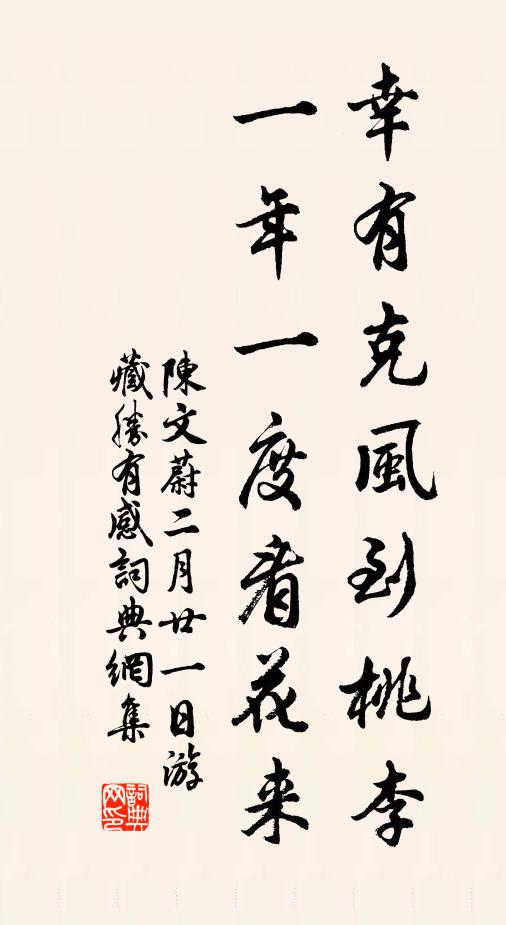 幸有克風到桃李
一年一度看花来
陳文蔚二月廿一日游
藏勝有感詞典網集
詞典网印